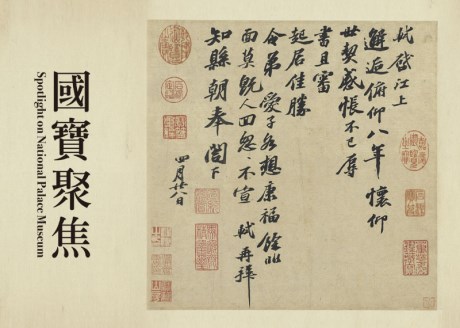 國寶聚焦
Spotlight on National Palace Museum
軾啟江上
邂逅俯仰八年懷仰
世契感悵不已辱
書且審
起居佳勝
令弟愛子各想康福餘非
面莫既人回忽忽不宣軾再拜
知縣朝奉閣下
四月廿八日